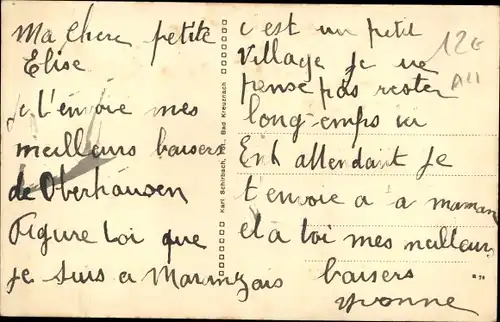 Ma chere petite
Elise
Je t'envoie mes
meilleurs baisers
de Oberhausen
Figure toi que
je suis a
c'est un petit
village je ne
pense pas rester
longtemps ici
En attendant je
t'envoie a ta maman
et a toi mes meilleurs
baisers
yvonne
Karl Schirbach, Bad Kreuznach
12€
A11